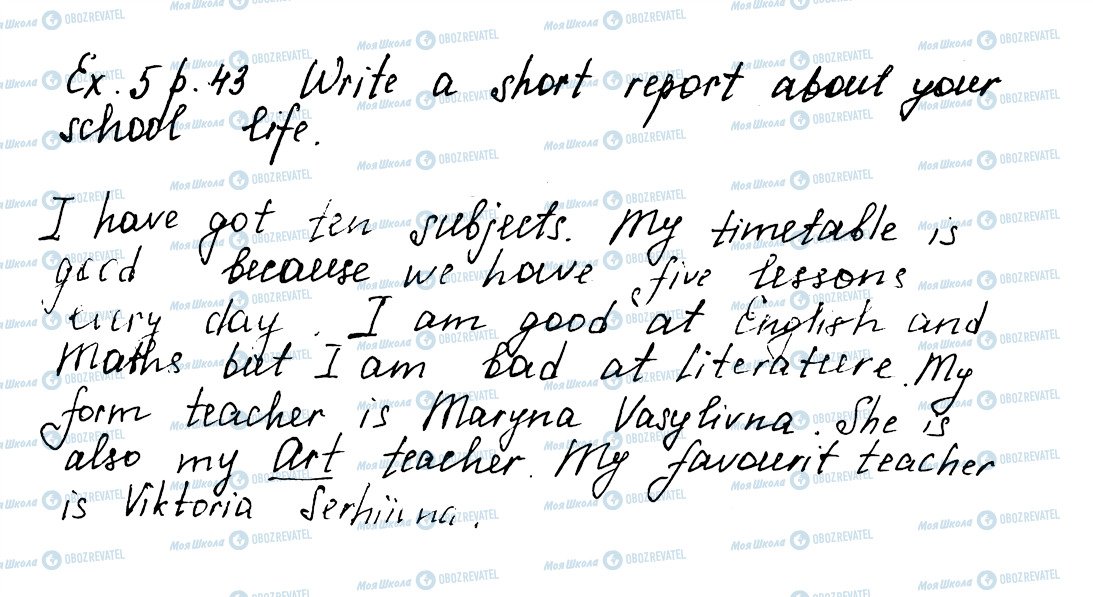 Ex. 5 p. 43 Write a short report about your
school life.
I have got ten subjects. My timetable is
good because we have five lessons
every day. I am good at English and
Maths but I am bad at literature. My
form teacher is Maryna Vasylivna. She is
also my Art teacher. My favourit teacher
is Viktoria Serhiivna.
Моя Школа OBOZREVATEL